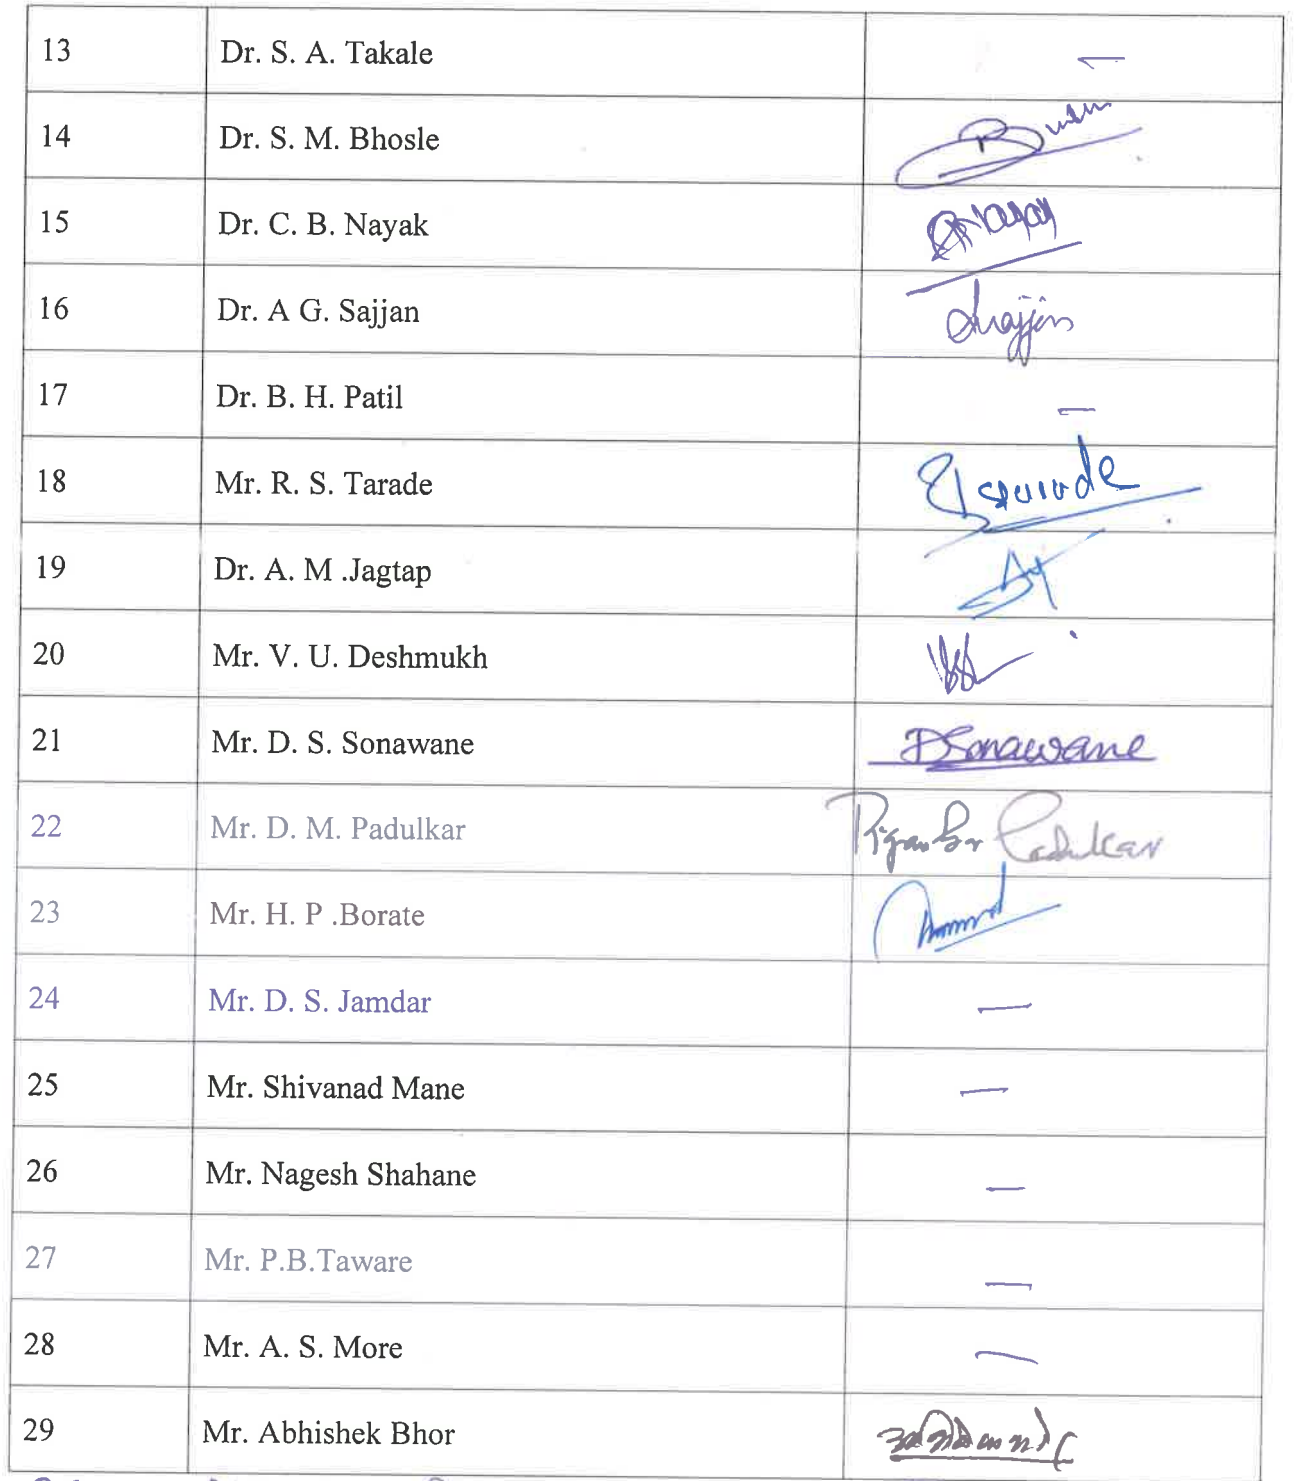 13 Dr. S. A. Takale –
14 Dr. S. M. Bhosle
15 Dr. C. B. Nayak Nayak
16 Dr. A G. Sajjan Sajjan
17 Dr. B. H. Patil –
18 Mr. R. S. Tarade
19 Dr. A. M .Jagtap
20 Mr. V. U. Deshmukh
21 Mr. D. S. Sonawane DSonawane
22 Mr. D. M. Padulkar Padulkar
23 Mr. H. P .Borate
24 Mr. D. S. Jamdar –
25 Mr. Shivanad Mane –
26 Mr. Nagesh Shahane –
27 Mr. P.B.Taware –
28 Mr. A. S. More –
29 Mr. Abhishek Bhor